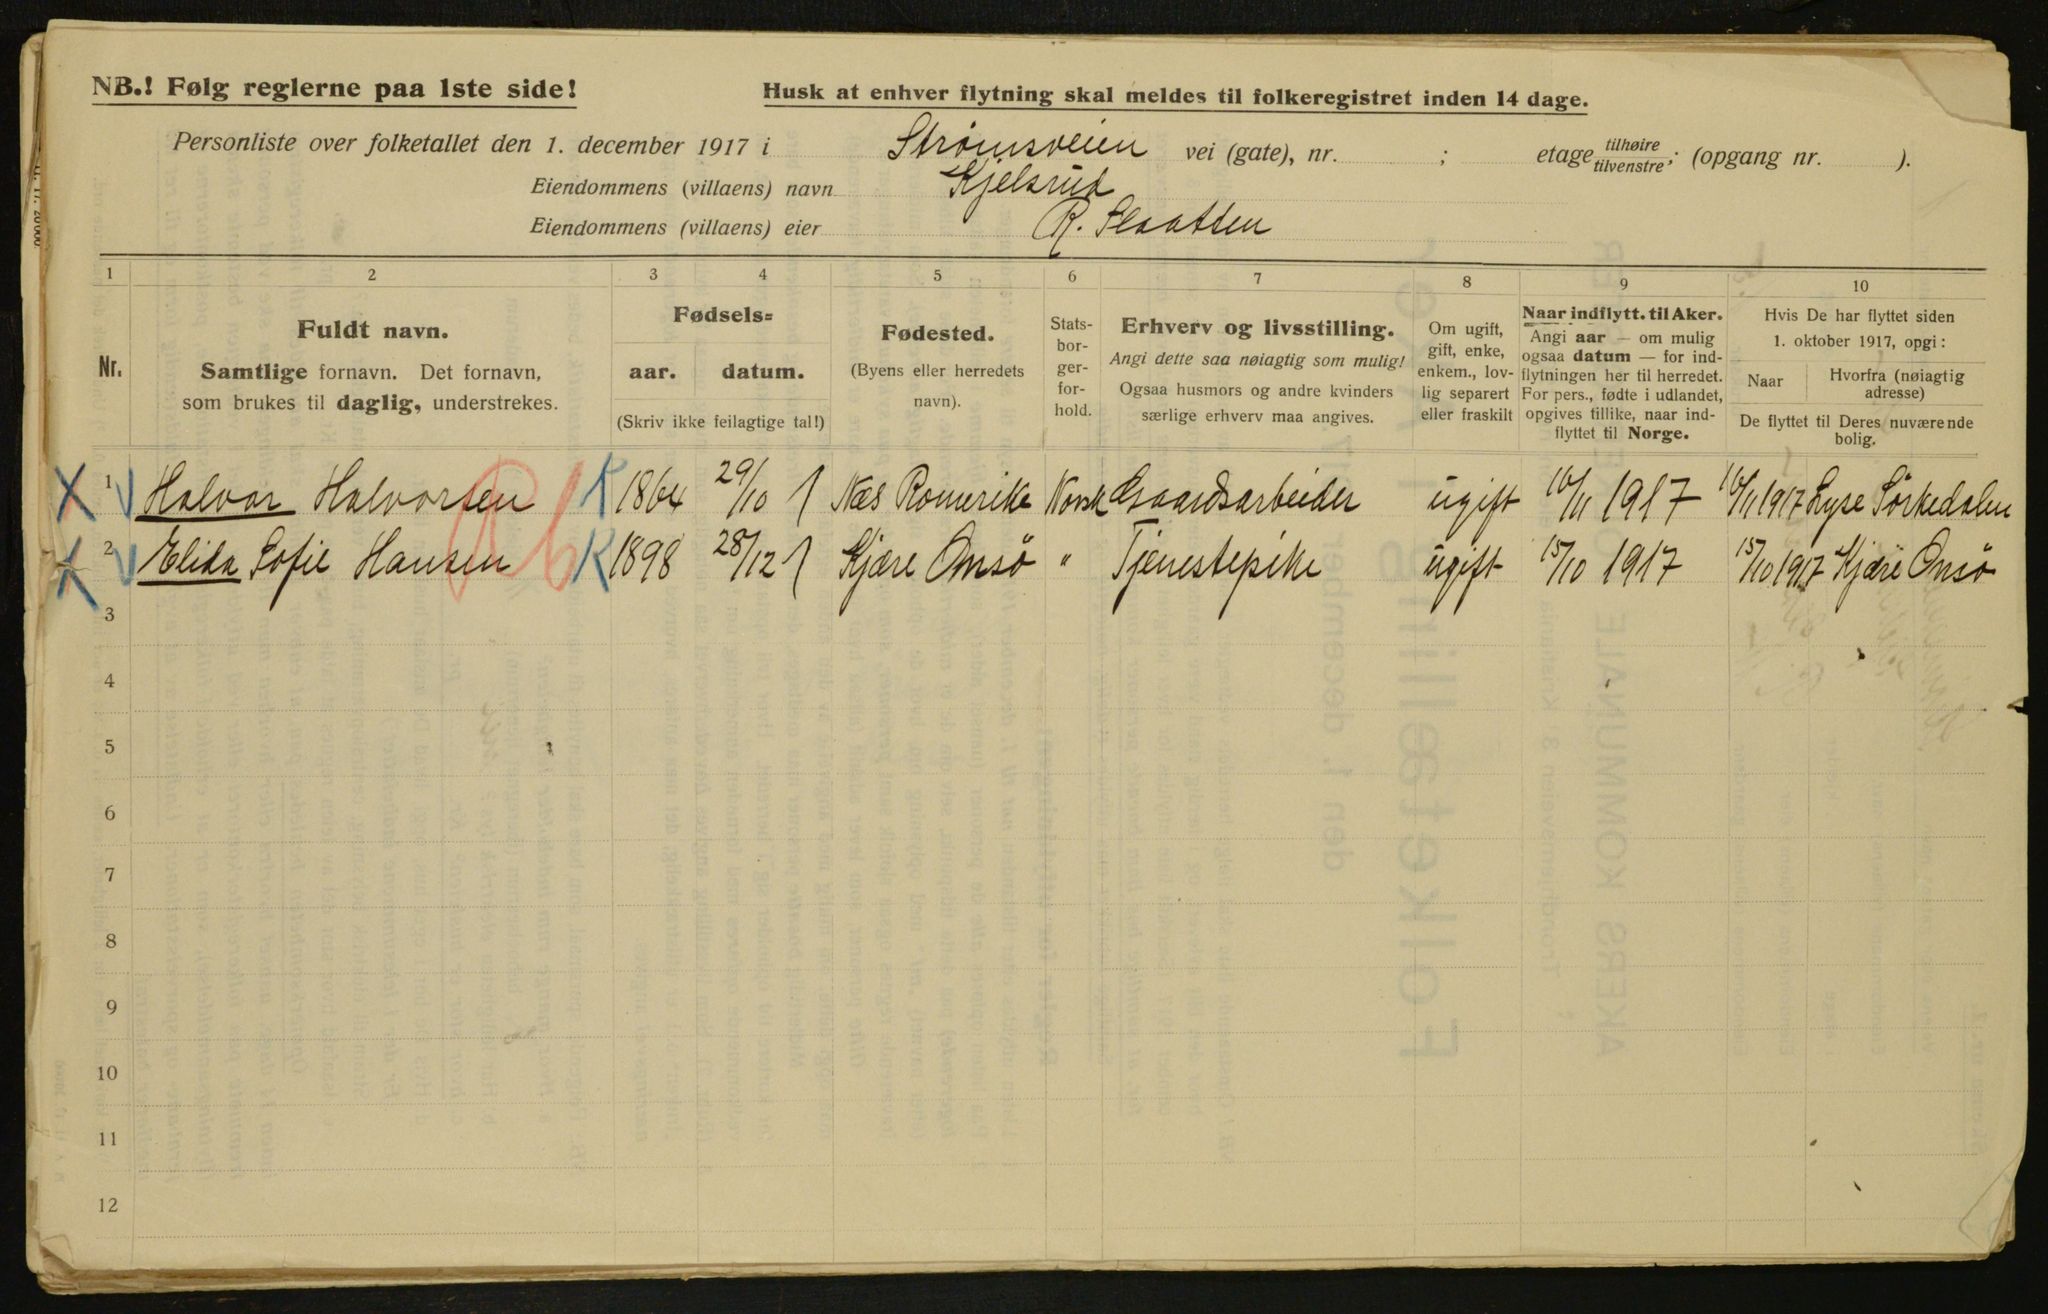 NB.! Følg reglerne paa 1ste side!
Husk at enhver flytning skal meldes til folkeregistret inden 14 dage.
Personliste over folketallet den 1. december 1917 i Strømsveien vei (gate), nr. ; etage tilhøire tilvenstre; (opgang nr. ).
Eiendommens (villaens) navn Kjelsrud
Eiendommens (villaens) eier R. Slaatten
1 2 3 4 5 6 7 8 9 10
Nr.
Fuldt navn.
Samtlige fornavn. Det fornavn,
som brukes til daglig, understrekes.
Fødsels=
aar. datum.
(Skriv ikke feilagtige tal!)
Fødested.
(Byens eller herredets
navn).
Stats-
bor-
ger-
for-
hold.
Erhverv og livsstilling.
Angi dette saa nøiagtig som mulig!
Ogsaa husmors og andre kvinders
særlige erhverv maa angives.
Om ugift,
gift, enke,
enkem., lov-
lig separert
eller fraskilt
Naar indflytt. til Aker.
Angi aar — om mulig
ogsaa datum — for ind-
flytningen her til herredet.
For pers., fødte i udlandet,
opgives tillike, naar ind-
flyttet til Norge.
Hvis De har flyttet siden
1. oktober 1917, opgi:
Naar
Hvorfra (nøiagtig
adresse)
De flyttet til Deres nuværende
bolig.
1 Halvor Halvorsen 1864 29/10 Næs Romerike Norsk Gaardsarbeider ugift 10/11 1917 10/11 1917 Lyse Sörkedalen
2 Elida Sofie Hansen K 1898 28/12 Kjære Onsö " Tjenestepike ugift 15/10 1917 15/10 1917 Kjære Onsö
3
4
5
6
7
8
9
10
11
12